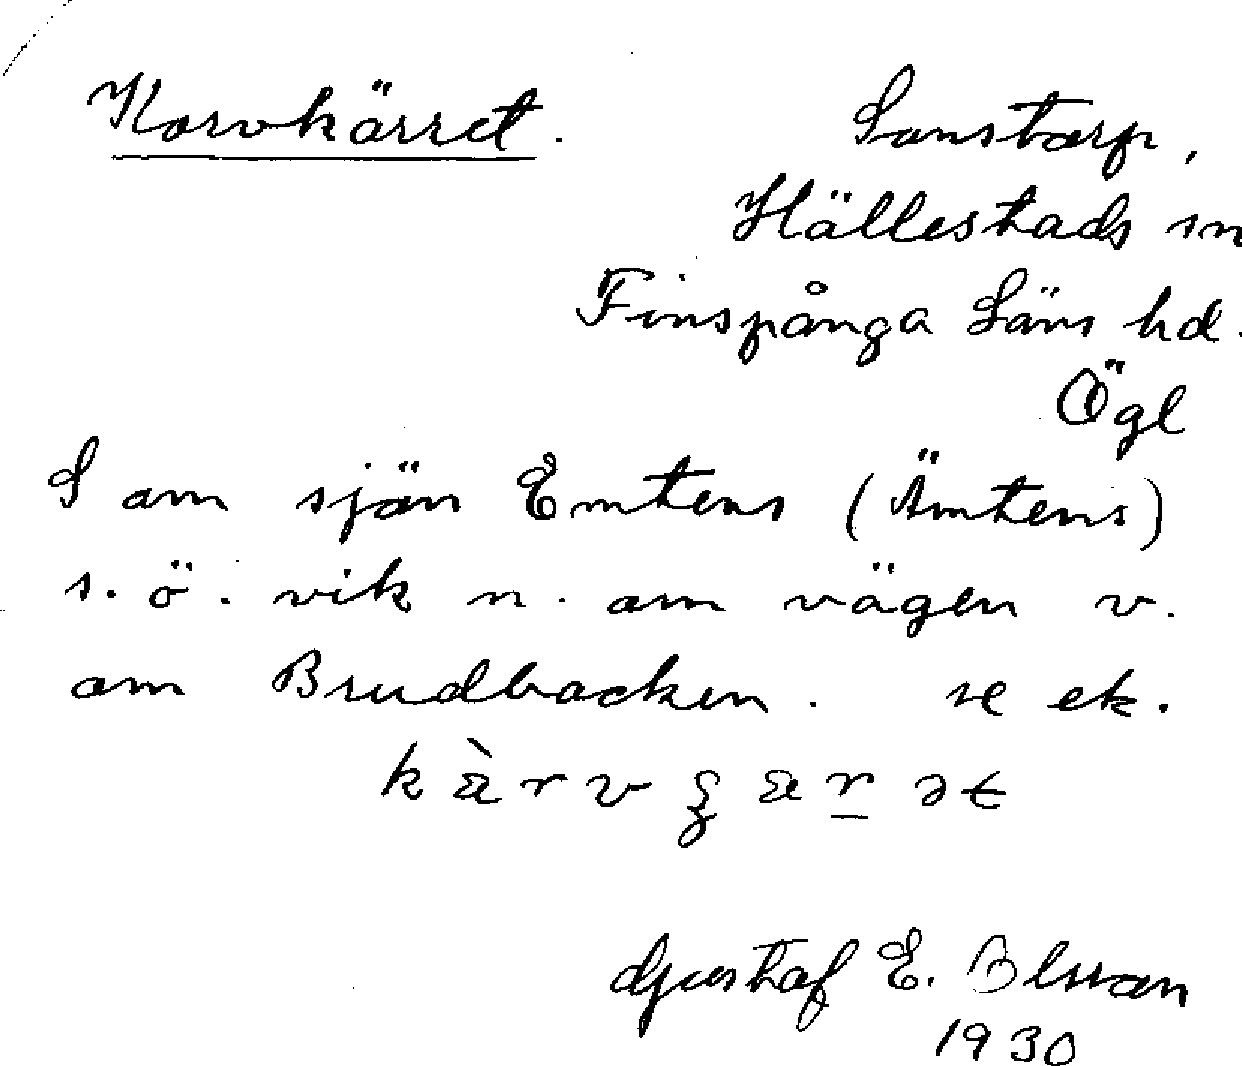 Korvkärret.
Sonstorp,
Hällestads sn
Finspånga Läns hd.
Ögl
S om sjön Emtens (Ämtens)
s. ö. vik n. om vägen v.
om Brudbacken. se ek.
Gustaf E.
1930